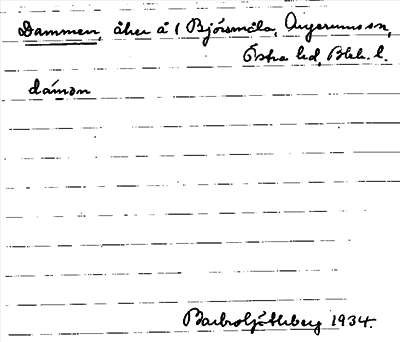 Dammen, åker å 1 Bjørsmåla, Augerums sn,
Östra hd, Blek. l.
dámən
Barbro Ljöthberg 1934.